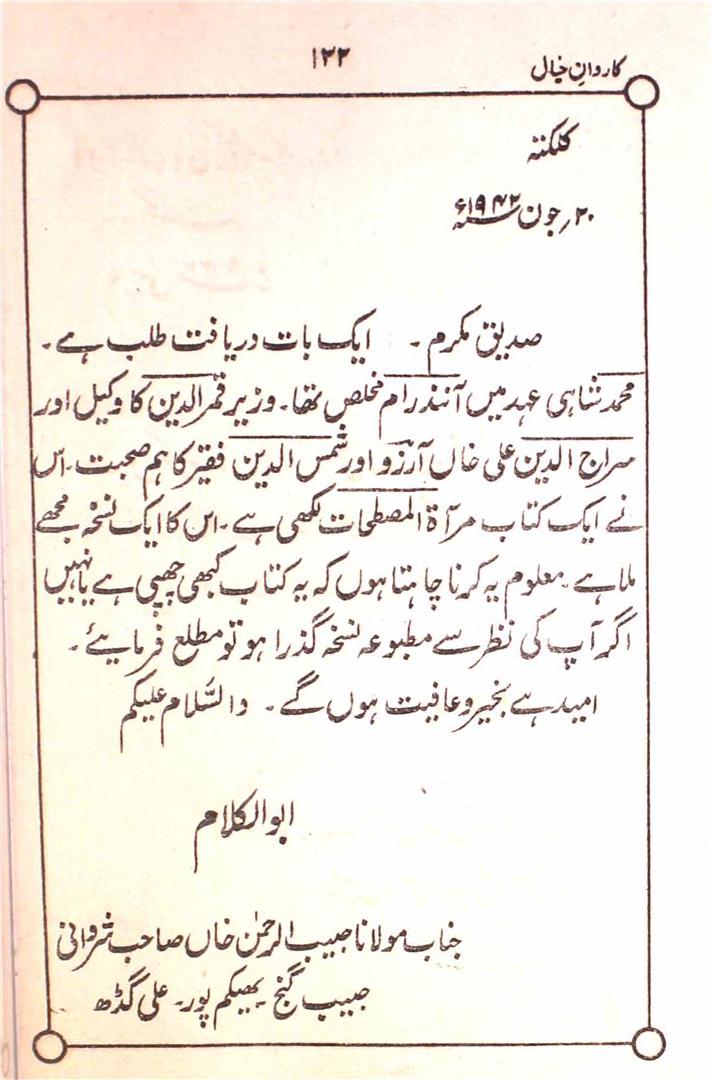 کاروانِ خیال
۱۲۲
کلکتہ
۲۰؍جون ۱۹۴۲ء
صدیق مکرم ۔ ایک بات دریافت طلب ہے۔
محمد شاہی عہد میں آنند رام مخلص تھا۔ وزیر قمر الدین کا وکیل اور
سراج الدین علی خاں آرزو اور شمس الدین فقیر کا ہم صحبت۔ اس
نے ایک کتاب مرآۃ المصطلحات لکھی ہے۔ اس کا ایک نسخہ مجھے
ملا ہے۔ معلوم یہ کرنا چاہتا ہوں کہ یہ کتاب کبھی چھپی ہے یا نہیں
اگر آپ کی نظر سے مطبوعہ نسخہ گذرا ہو تو مطلع فرمایئے۔
امید ہے بخیر و عافیت ہوں گے۔ والسَّلام علیکم
ابوالکلام
جناب مولانا حبیب الرحمٰن خاں صاحب شروانی
حبیب گنج بھیکم پور۔ علی گڈھ